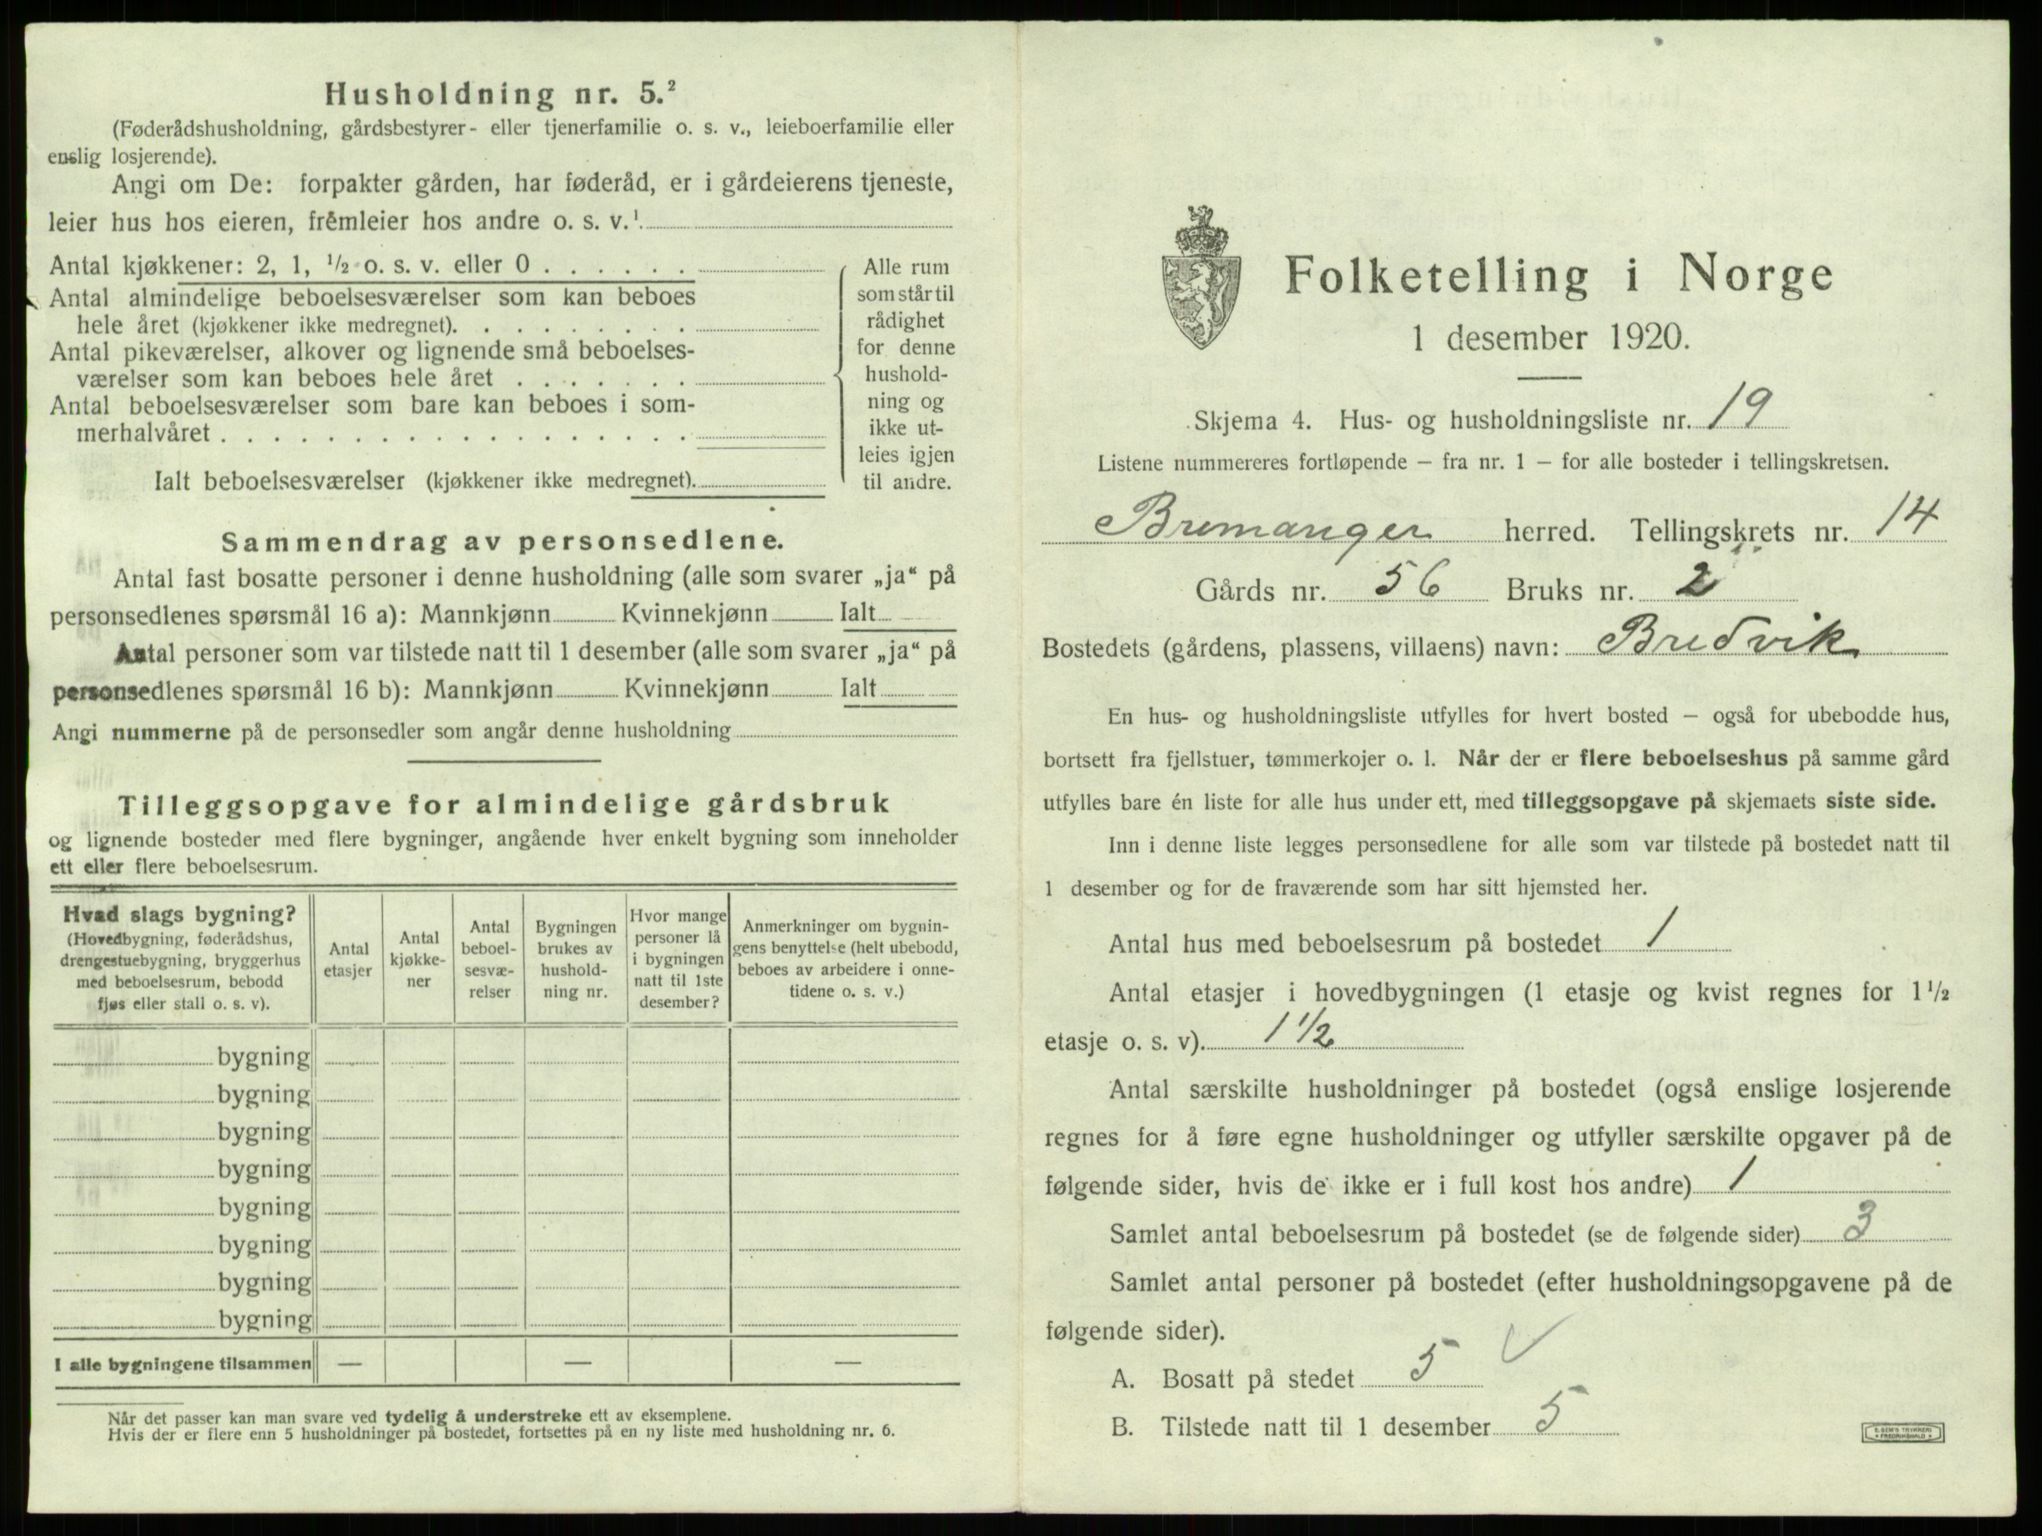 Husholdning nr. 5.²
(Føderådshusholdning, gårdsbestyrer- eller tjenerfamilie o. s. v., leieboerfamilie eller
enslig losjerende).
Angi om De: forpakter gården, har føderåd, er i gårdeierens tjeneste,
leier hus hos eieren, fremleier hos andre o. s. v.¹
Antal kjøkkener: 2, 1, ½ o. s. v. eller 0 . . . . . .
Antal almindelige beboelsesværelser som kan beboes
hele året (kjøkkener ikke medregnet). . . . . . . . .
Antal pikeværelser, alkover og lignende små beboelses-
værelser som kan beboes hele året . . . . . . .
Antal beboelsesværelser som bare kan beboes i som-
merhalvåret . . . . . . . . . . . . . . . . . .
Ialt beboelsesværelser (kjøkkener ikke medregnet).
Alle rum
som står til
rådighet
for denne
hushold-
ning og
ikke ut-
leies igjen
til andre.
Sammendrag av personsedlene.
Antal fast bosatte personer i denne husholdning (alle som svarer „ja“ på
personsedlenes spørsmål 16 a): Mannkjønn Kvinnekjønn Ialt
Antal personer som var tilstede natt til 1 desember (alle som svarer „ja“ på
personsedlenes spørsmål 16 b): Mannkjønn Kvinnekjønn Ialt
Angi nummerne på de personsedler som angår denne husholdning
Tilleggsopgave for almindelige gårdsbruk
og lignende bosteder med flere bygninger, angående hver enkelt bygning som inneholder
ett eller flere beboelsesrum.
Hvad slags bygning?
(Hovedbygning, føderådshus,
drengestuebygning, bryggerhus
med beboelsesrum, bebodd
fjøs eller stall o. s. v).
Antal
etasjer
Antal
kjøkke-
ner
Antal
beboel-
sesvæ-
relser
Bygningen
brukes av
hushold-
ning nr.
Hvor mange
personer lå
i bygningen
natt til 1ste
desember?
Anmerkninger om bygnin-
gens benyttelse (helt ubebodd,
beboes av arbeidere i onne-
tidene o. s. v.)
bygning
bygning
bygning
bygning
bygning
bygning
bygning
bygning
I alle bygningene tilsammen — — —
Når det passer kan man svare ved tydelig å understreke ett av eksemplene.
Hvis der er flere enn 5 husholdninger på bostedet, fortsettes på en ny liste med husholdning nr. 6.
Folketelling i Norge
1 desember 1920.
Skjema 4. Hus- og husholdningsliste nr. 19
Listene nummereres fortløpende – fra nr. 1 – for alle bosteder i tellingskretsen.
Bremanger herred. Tellingskrets nr. 14
Gårds nr. 56 Bruks nr. 2
Bostedets (gårdens, plassens, villaens) navn: Bredvik
En hus- og husholdningsliste utfylles for hvert bosted – også for ubebodde hus,
bortsett fra fjellstuer, tømmerkojer o. l. Når der er flere beboelseshus på samme gård
utfylles bare én liste for alle hus under ett, med tilleggsopgave på skjemaets siste side.
Inn i denne liste legges personsedlene for alle som var tilstede på bostedet natt til
1 desember og for de fraværende som har sitt hjemsted her.
Antal hus med beboelsesrum på bostedet 1
Antal etasjer i hovedbygningen (1 etasje og kvist regnes for 1½
etasje o. s. v). 1½
Antal særskilte husholdninger på bostedet (også enslige losjerende
regnes for å føre egne husholdninger og utfyller særskilte opgaver på de
følgende sider, hvis de ikke er i full kost hos andre) 1
Samlet antal beboelsesrum på bostedet (se de følgende sider) 3
Samlet antal personer på bostedet (efter husholdningsopgavene på de
følgende sider).
A. Bosatt på stedet 5 ✓
B. Tilstede natt til 1 desember 5
E. SEM'S TRYKKERI
FREDRIKSHALD